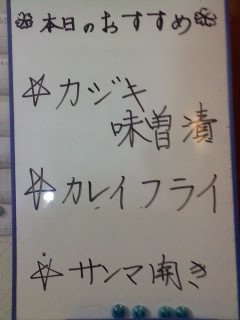 本日のおすすめ
☆カジキ
味曽漬
☆カレイフライ
☆サンマ開き